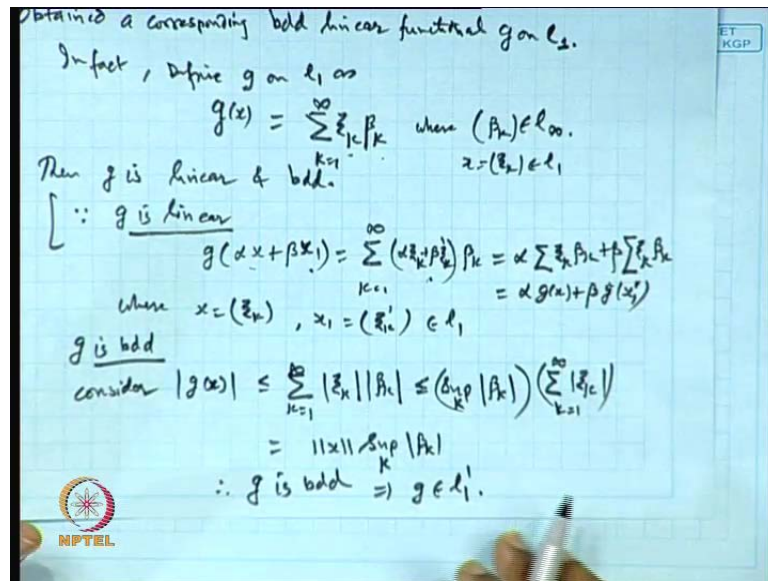 obtained a corresponding bdd linear functional g on l₁.
In fact, Define g on l₁ as
g(x) = ∑_{k=1}^{∞} ξ_k β_k where (β_k) ∈ l_∞.
x = (ξ_k) ∈ l₁
Then g is linear & bdd.
[ ∵ g is linear
g(αx + βx₁) = ∑_{k=1}^{∞} (αξ_k + βξ'_k) β_k = α ∑ ξ_k β_k + β ∑ ξ'_k β_k
= α g(x) + β g(x₁)
where x = (ξ_k), x₁ = (ξ'_k) ∈ l₁
g is bdd
consider |g(x)| ≤ ∑_{k=1}^{∞} |ξ_k| |β_k| ≤ (Sup_k |β_k|) (∑_{k=1}^{∞} |ξ_k|)
= ||x|| Sup_k |β_k|
∴ g is bdd ⇒ g ∈ l₁'.
ET
KGP
NPTEL